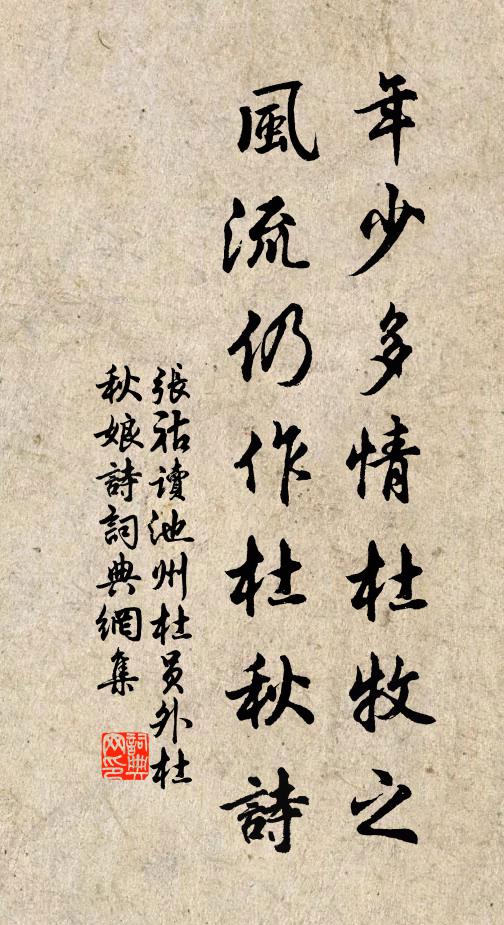 年少多情杜牧之
風流仍作杜秋詩
張祜讀池州杜員外杜
秋娘詩詞典網集
詞典
网印